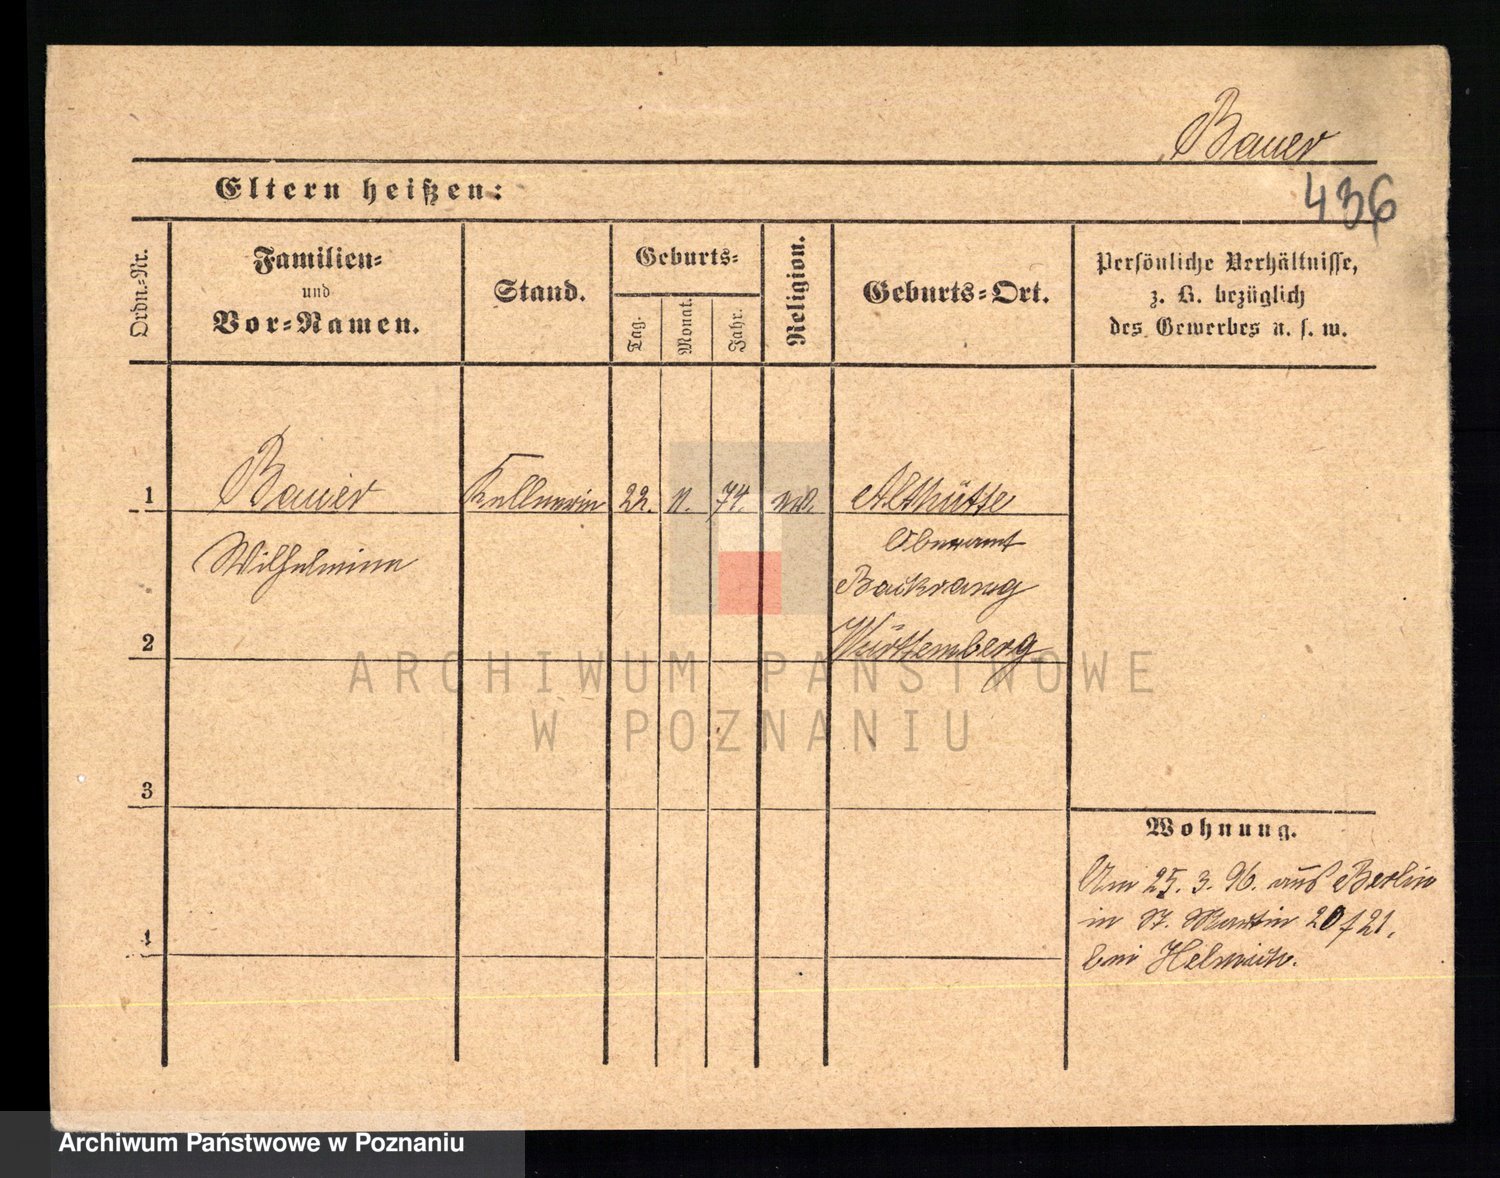 Bauer
Eltern heißen:
436
Ordn.-Nr.
Familien-
und
Vor-Namen.
Stand.
Geburts-
Tag.
Monat.
Jahr.
Religion.
Geburts-Ort.
Persönliche Verhältnisse,
z. B. bezüglich
des Gewerbes u. s. w.
1 Bauer Kellnerin 22. 11. 74. ev. Althütte
Wilhelmine Oberamt
Backnang
2 Württemberg
ARCHIWUM PAŃSTWOWE
W POZNANIU
3
Wohnung.
Am 25. 3. 96. aus Berlin
in St. Martin 20/21.
4
bei
Archiwum Państwowe w Poznaniu